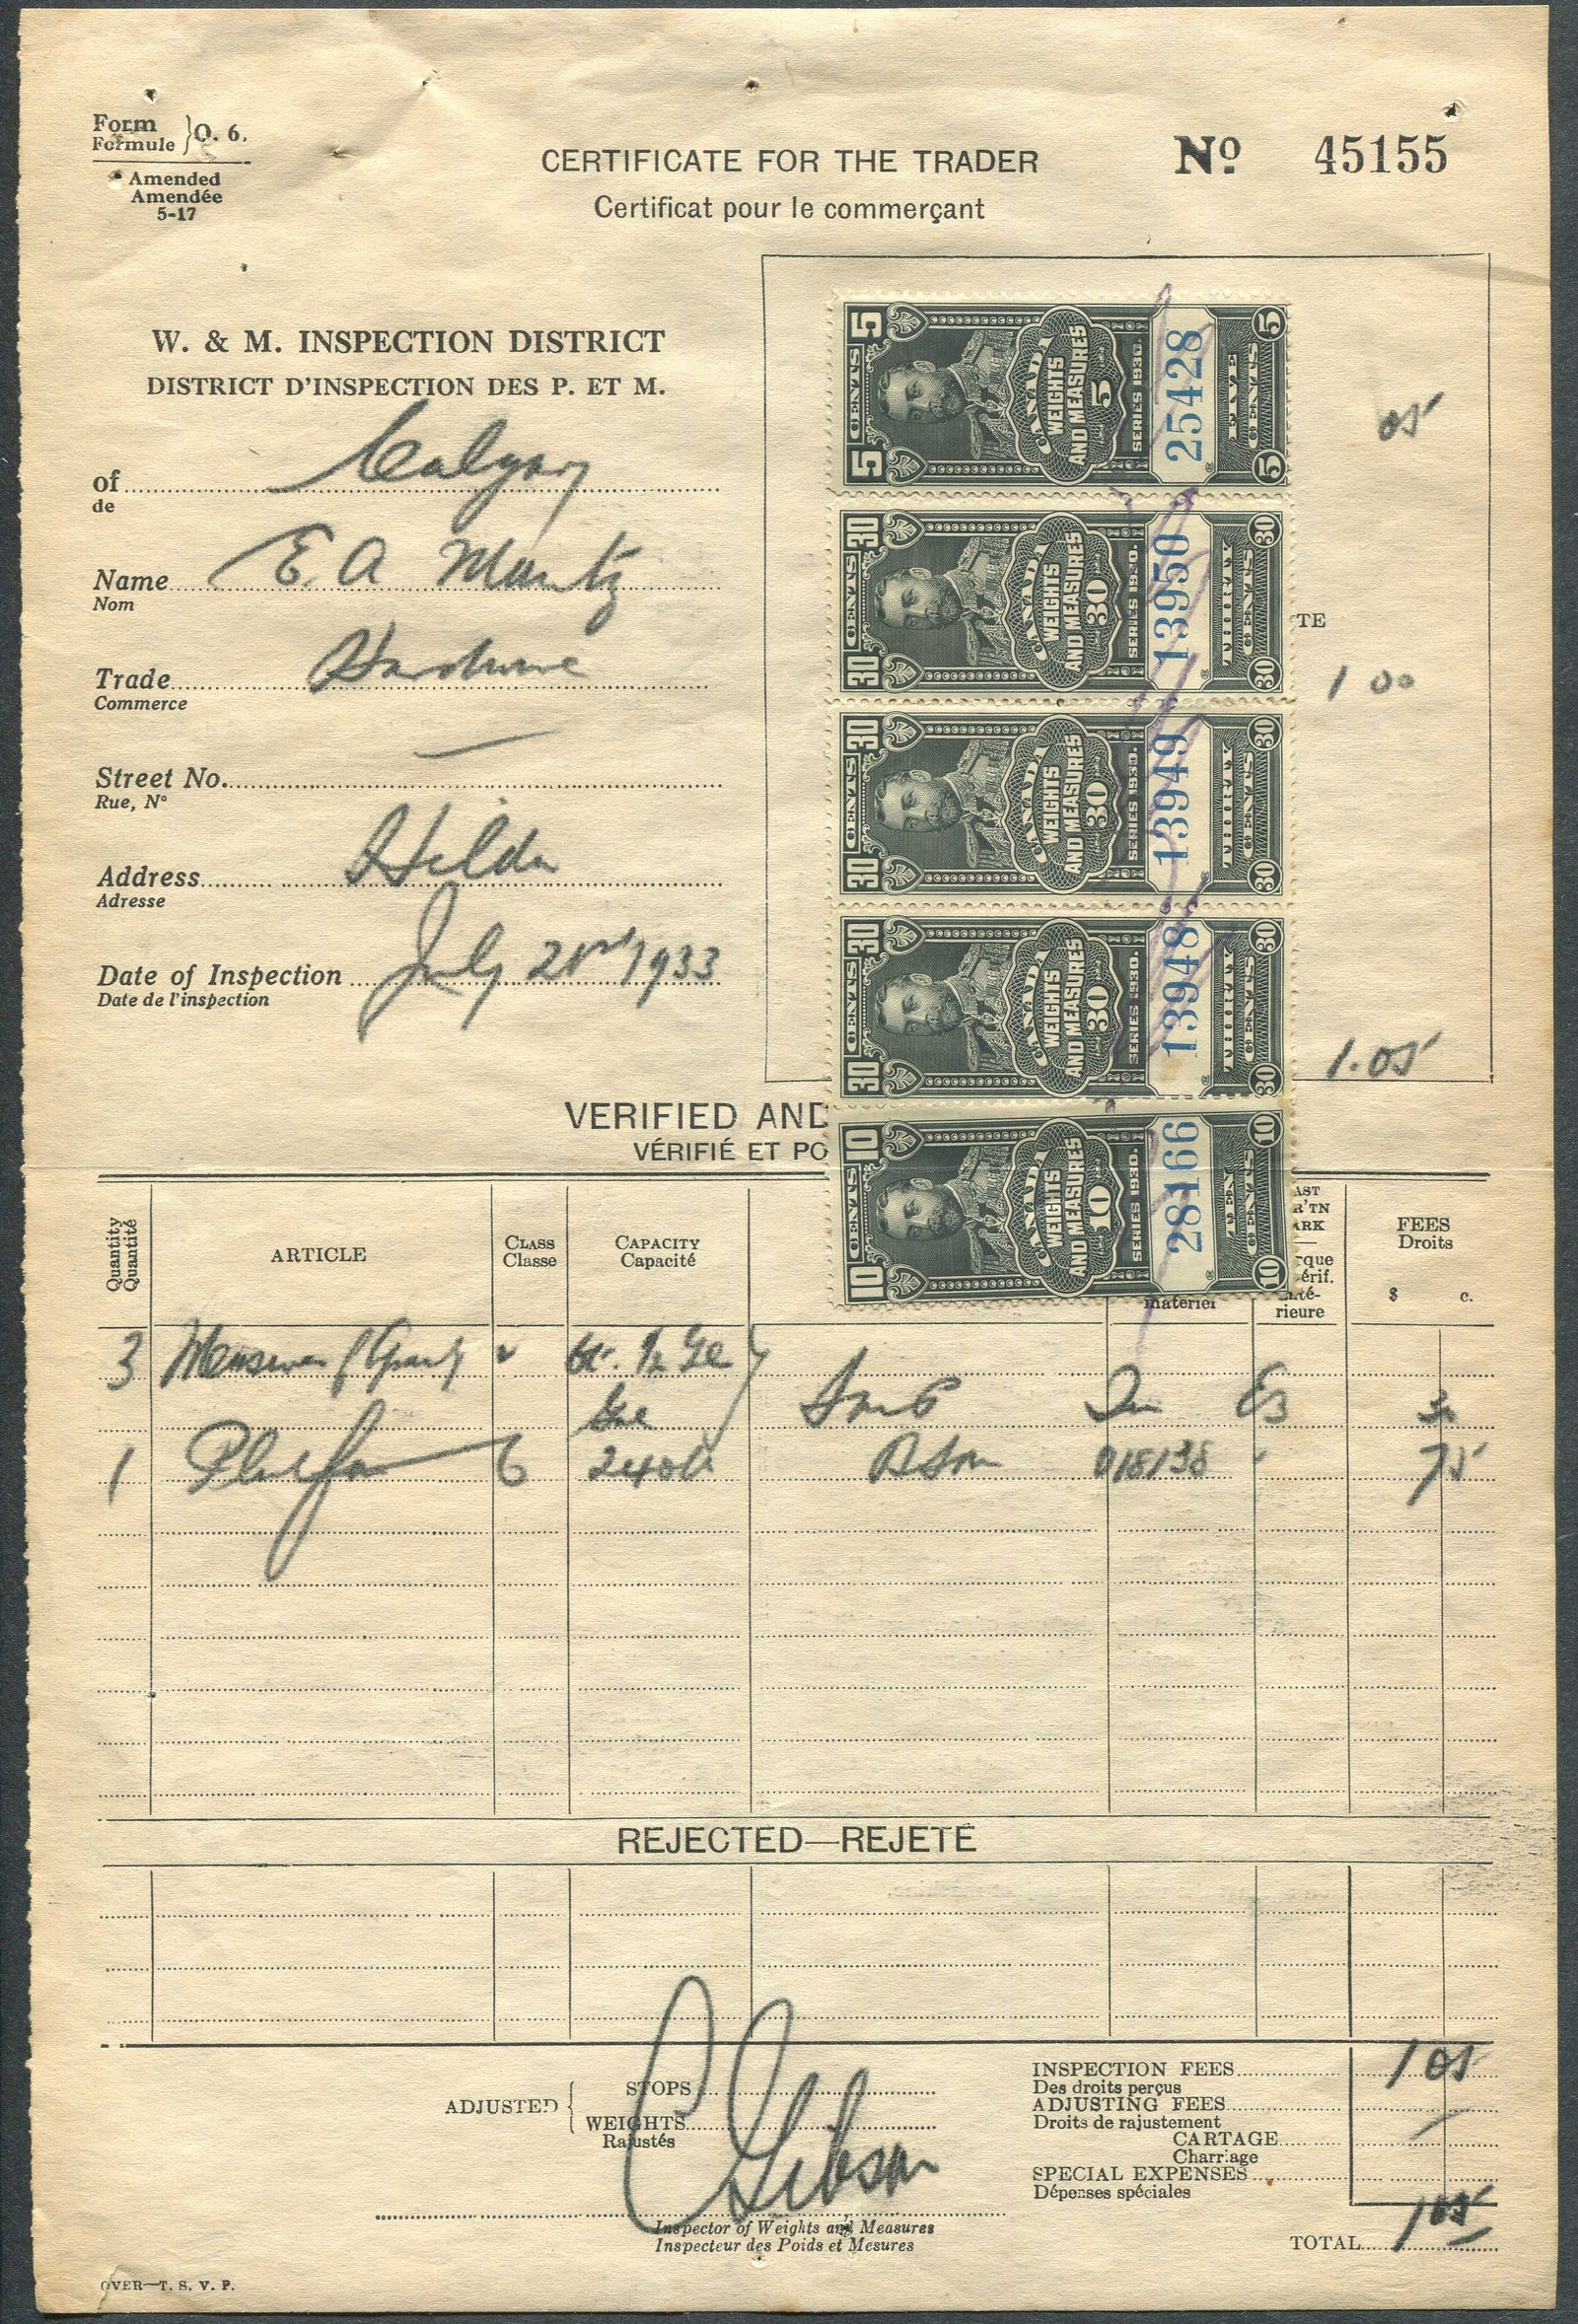 Form
Formule } O. 6.
Amended
Amendée
5-17
CERTIFICATE FOR THE TRADER
Certificat pour le commerçant
Nº 45155
W. & M. INSPECTION DISTRICT
DISTRICT D'INSPECTION DES P. ET M.
of Calgary
de
Name E. A Muntz
Nom
Trade Hardware
Commerce
Street No. —
Rue, Nº
Address Hilda
Adresse
Date of Inspection July 21st 1933
Date de l'inspection
5 CENTS 5
CANADA
WEIGHTS
AND MEASURES
5
SERIES 1930.
25428
5 FIVE CENTS 5
05
30 CENTS 30
CANADA
WEIGHTS
AND MEASURES
30
SERIES 1930.
13950
30 THIRTY CENTS 30
TE
1 00
30 CENTS 30
CANADA
WEIGHTS
AND MEASURES
30
SERIES 1930.
13949
30 THIRTY CENTS 30
30 CENTS 30
CANADA
WEIGHTS
AND MEASURES
30
SERIES 1930.
13948
30 THIRTY CENTS 30
1.05
10 CENTS 10
CANADA
WEIGHTS
AND MEASURES
10
SERIES 1930.
28166
10 TEN CENTS 10
VERIFIED AND
VÉRIFIÉ ET PO
Quantity
Quantité
ARTICLE
CLASS
Classe
CAPACITY
Capacité
matériel
AST
R'TN
ARK
rque
érif.
té-
rieure
FEES
Droits
$ c.
3
1 Platform C 240lb 018138 " 75
REJECTED—REJETÉ
ADJUSTED { STOPS
WEIGHTS
Rajustés
C Gibson
Inspector of Weights and Measures
Inspecteur des Poids et Mesures
INSPECTION FEES 1 05
Des droits perçus
ADJUSTING FEES
Droits de rajustement —
CARTAGE
Charriage
SPECIAL EXPENSES
Dépenses spéciales
TOTAL 1 05
OVER—T. S. V. P.